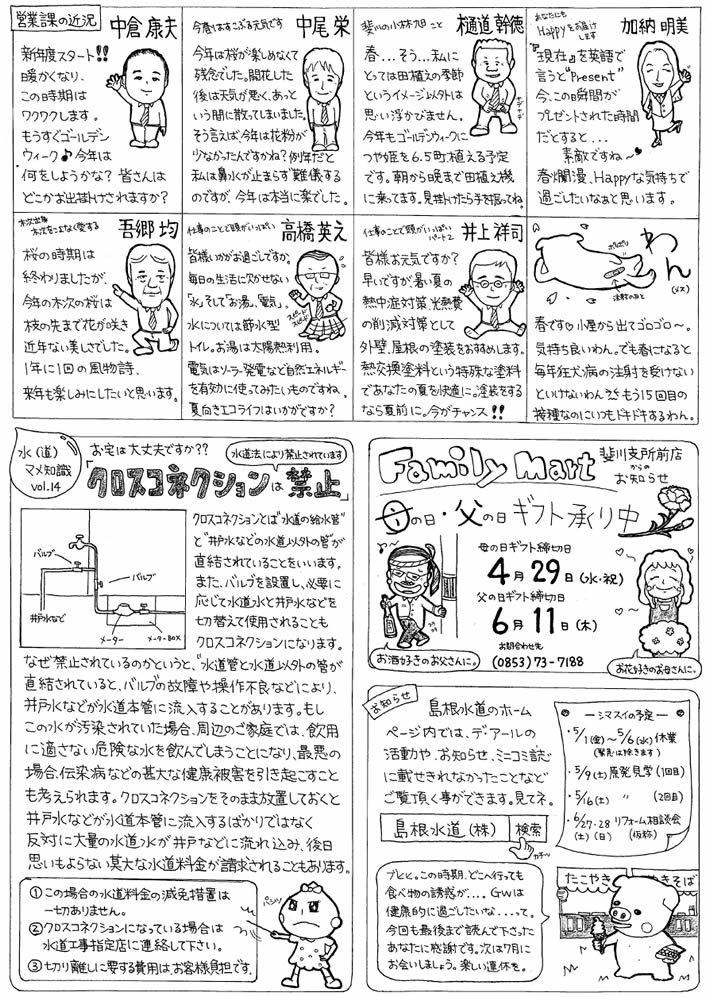 営業課の近況
中倉 康夫
新年度スタート!!
暖かくなり、
この時期は
ワクワクします。
もうすぐゴールデン
ウィーク♪今年は
何をしようかな?皆さんは
どこかお出掛けされますか?
今春はすこぶる元気です
中尾 栄
今年は桜が楽しめなくて
残念でした。開花した
後は天気が悪く、あっと
いう間に散ってしまいました。
そう言えば、今年は花粉が
少なかったんですかね?例年だと
私は鼻水が止まらず難儀する
のですが、今年は本当に楽でした。
斐川の小林旭 こと
樋道 幹徳
春…そう…私に
とっては田植えの季節
というイメージ以外は
思い浮かびません。
今年もゴールデンウィークに
つや姫を6.5町植える予定
です。朝から晩まで田植え機
に乗ってます。見掛けたら手を振ってね。
あなたにも
Happyをお届け
します
加納 明美
『現在』を英語で
言うと"Present"
今、この瞬間が
プレゼントされた時間
だとすると…
素敵ですね~
春爛漫、Happyな気持ちで
過ごしたいなぁと思います。
木次出身
木次をこよなく愛する
吾郷 均
桜の時期は
終わりましたが、
今年の木次の桜は
枝の先まで花が咲き
近年ない美しさでした。
1年に1回の風物詩、
来年も楽しみにしたいと思います。
仕事のことで頭がいっぱい
高橋 英之
皆様いかがお過ごしですか。
毎日の生活に欠かせない
「水」そして「お湯」、「電気」。
水については節水型
トイレ。お湯は太陽熱利用。
電気はソーラー発電など自然エネルギー
を有効に使ってみたいものですね。
夏向きエコライフはいかがですか?
スピード
スピード
仕事のことで頭がいっぱい
パート2
井上 祥司
皆様お元気ですか?
早いですが暑い夏の
熱中症対策、光熱費
の削減対策として
外壁、屋根の塗装をおすすめします。
熱交換塗料という特殊な塗料
であなたの夏を快適に。塗装をする
なら夏前に。今がチャンス!!
わん
(メス)
ポリポリ
注射のあと
春です♡小屋から出てゴロゴロ~。
気持ち良いわん。でも春になると
毎年狂犬病の注射を受けない
といけないわん もう15回目の
接種なのにいつもドキドキするわん。
水(道)
マメ知識
vol.14
お宅は大丈夫ですか??
水道法により禁止されています
「クロスコネクションは禁止」
バルブ
バルブ
井戸水など
メーター
メーターBOX
クロスコネクションとは"水道の給水管"
と"井戸水などの水道以外の管"が
直結されていることをいいます。
また、バルブを設置し、必要に
応じて水道水と井戸水などを
切替えて使用されることも
クロスコネクションになります。
なぜ禁止されているのかというと、"水道管と水道以外の管が
直結されていると、バルブの故障や操作不良などにより、
井戸水などが水道本管に流入することがあります。もし
この水が汚染されていた場合、周辺のご家庭では、飲用
に適さない危険な水を飲んでしまうことになり、最悪の
場合、伝染病などの甚大な健康被害を引き起こすこと
も考えられます。クロスコネクションをそのまま放置しておくと
井戸水などが水道本管に流入するばかりではなく
反対に大量の水道水が井戸などに流れ込み、後日
思いもよらない莫大な水道料金が請求されることもあります。
①この場合の水道料金の減免措置は
一切ありません。
②クロスコネクションになっている場合は
水道工事指定店に連絡して下さい。
③切り離しに要する費用は、お客様負担です。
Family Mart
斐川支所前店
からの
お知らせ
母の日・父の日ギフト承り中
母の日ギフト締切日
4月29日(水・祝)
父の日ギフト締切日
6月11日(木)
お問合わせ先
(0853)73-7188
お酒好きのお父さんに。
お花好きのお母さんに。
お知らせ
島根水道のホーム
ページ内では、デアールの
活動や、お知らせ、ミニコミ誌
に載せきれなかったことなど
ご覧頂く事ができます。見てネ。
島根水道(株) 検索
カチッ
シマスイの予定
・5/1(金)~5/6(水)休業
(緊急は除きます)
・5/9(土)原発見学(1回目)
・5/16(土) 〃 (2回目)
・6/27・28 リフォーム相談会
(土)(日) (仮称)
ブヒヒ。この時期、どこへ行っても
食べ物の誘惑が…。GWは
健康的に過ごしたいな…って。
今回も最後まで読んで下さった
あなたに感謝です。次は7月に
お会いしましょう。楽しい連休を。
たこやき
やきそば